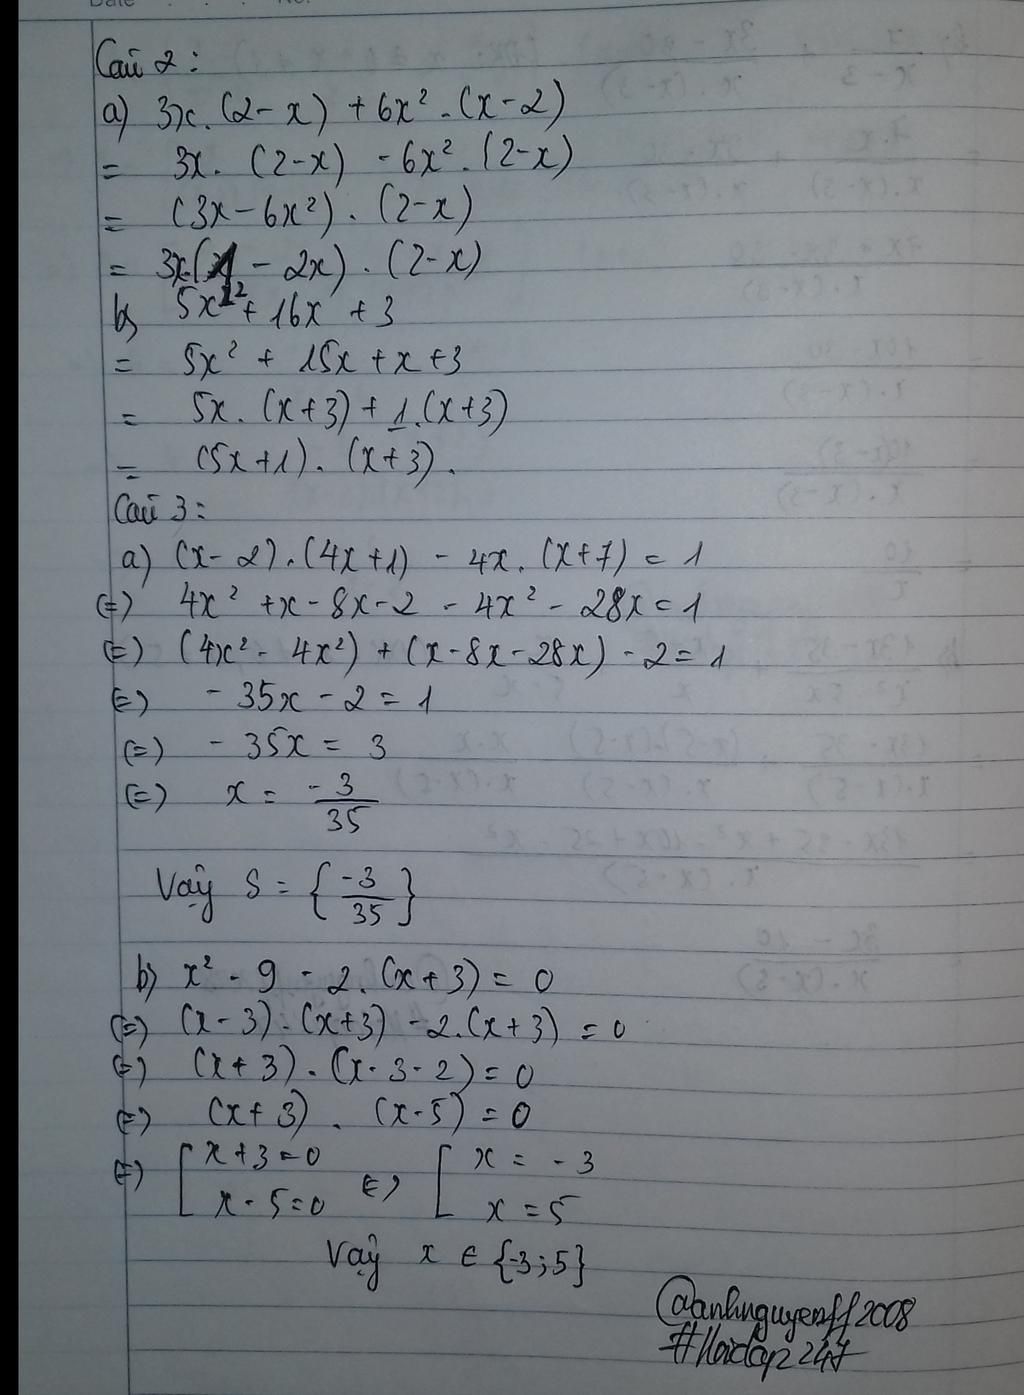 Date . . . No.
Câu 2 :
a) 3x. (2-x) + 6x² . (x-2)
= 3x. (2-x) - 6x² . (2-x)
= (3x-6x²) . (2-x)
= 3x(1 - 2x) . (2-x)
b) 5x² + 16x + 3
= 5x² + 15x + x + 3
= 5x. (x+3) + 1.(x+3)
= (5x+1). (x+3).
Câu 3 :
a) (x-2).(4x+1) - 4x. (x+7) = 1
(=) 4x² + x - 8x - 2 - 4x² - 28x = 1
(=) (4x² - 4x²) + (x-8x-28x) - 2 = 1
(=) - 35x - 2 = 1
(=) - 35x = 3
(=) x = -3/35
Vậy S = {-3/35}
b) x² - 9 - 2. (x+3) = 0
(=) (x-3) . (x+3) - 2.(x+3) = 0
(=) (x+3) . (x-3-2) = 0
(=) (x+3) . (x-5) = 0
(=) [ x+3=0 (=) [ x = -3
x-5=0 x = 5
Vậy x ∈ {-3;5}
@anhnguyenff2008
#Hoidap247